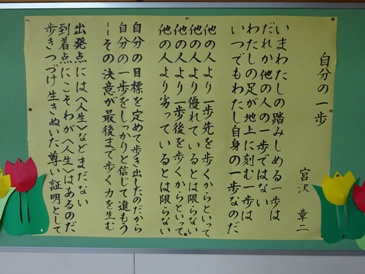 自分の一歩
宮沢 章二
いまわたしの踏みしめる一歩は
だれか他の人の一歩ではない
わたしの足が地上に刻む一歩は
いつでもわたし自身の一歩なのだ
他の人より一歩先を歩くからといって
他の人より優れているとは限らない
他の人より一歩後を歩くからといって
他の人より劣っているとは限らない
自分の目標を定めて歩き出したのだから
自分の一歩をしっかりと信じて進もう
―その決意が最後まで歩く力を生む
出発点には〈人生〉などまだない
到着点にこそわが〈人生〉はあるのだ
歩きつづけ生きぬいた尊い証明として